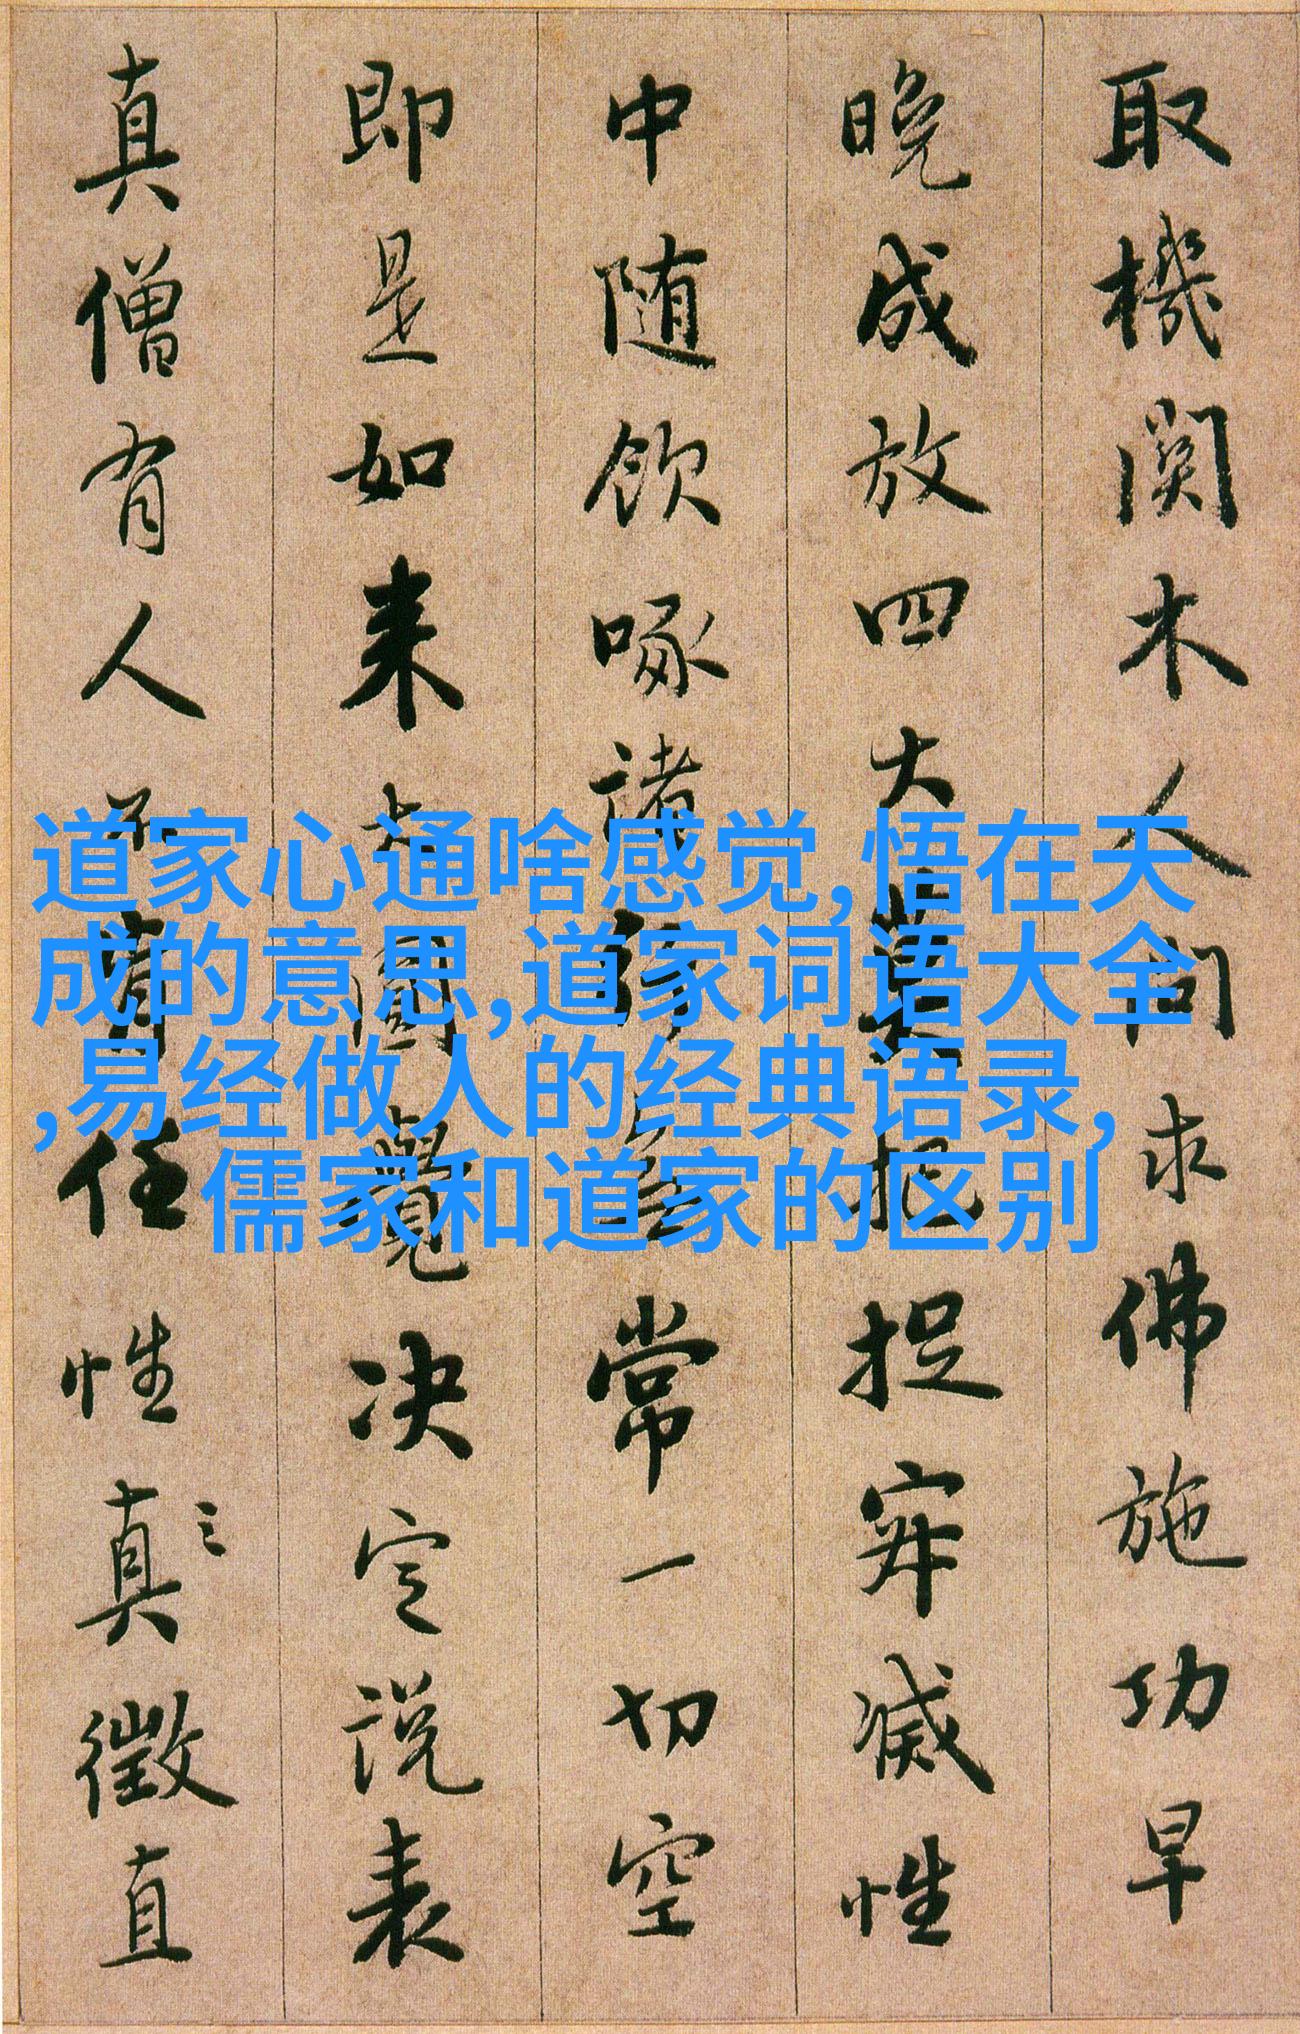 取機関木人問求佛施功早
晚成放四大莫把捉寂滅性
中随飲啄諸行無常一切空
即是如来大圓覺决定說表
真僧有人不肯任性真徵直
道家心通啥感觉,悟在天
成的意思,道家词语大全
,易经做人的经典语录,
儒家和道家的区别